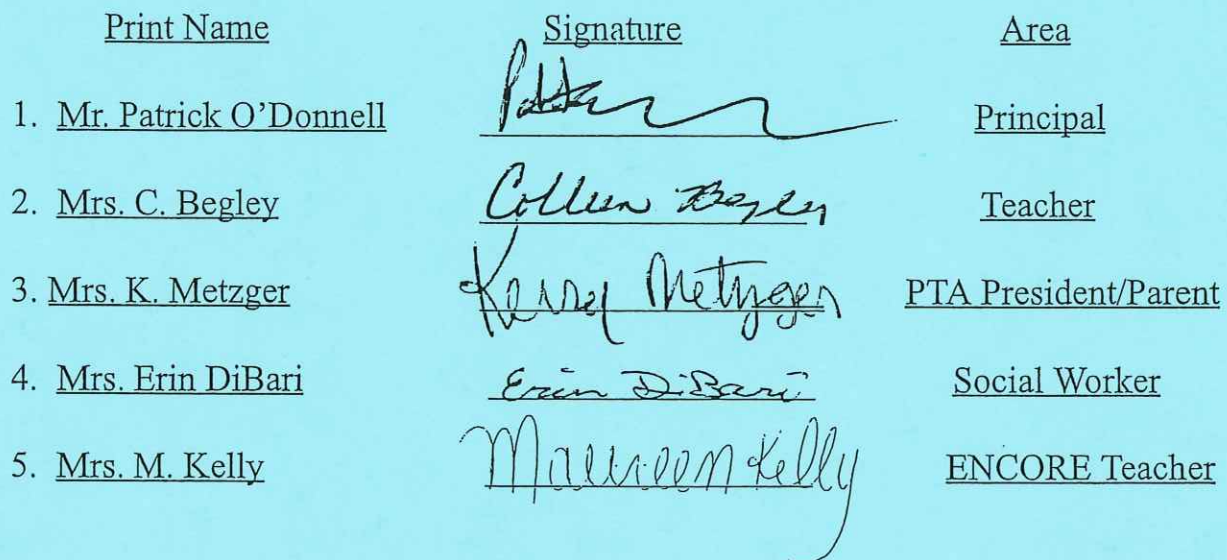 Print Name Signature Area
1. Mr. Patrick O'Donnell Principal
2. Mrs. C. Begley Colleen Begley Teacher
3. Mrs. K. Metzger Kerrey Metzger PTA President/Parent
4. Mrs. Erin DiBari Erin DiBari Social Worker
5. Mrs. M. Kelly Maureen Kelly ENCORE Teacher